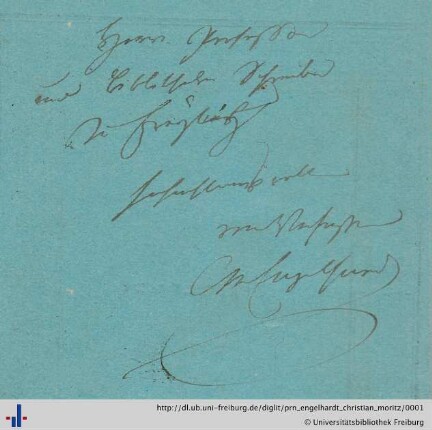 Herrn Professor
und Bibliothekar Schreiber
zu Freiburg
hochachtungsvoll
vom Verfasser
CMEngelhardt
http://dl.ub.uni-freiburg.de/diglit/prn_engelhardt_christian_moritz/0001
© Universitätsbibliothek Freiburg